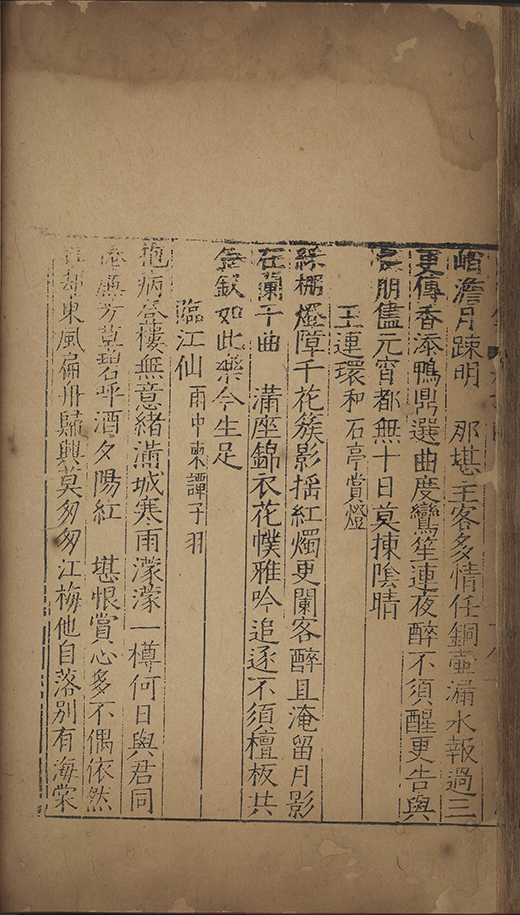 岫澹月疎明　那堪主客多情任銅壺漏水報過三
更傳香添鴨鼎選曲度鸞笙連夜醉不須醒更告與
良朋儘元宵都無十日莫揀陰晴
玉連環和石亭賞燈
綵棚燈障千花簇影搖紅燭更闌客醉且淹留月影
在闌干曲　滿座錦衣花幞雅吟追逐不須檀板共
金釵如此樂今生足
臨江仙雨中柬譚子羽
抱病登樓無意緒滿城寒雨濛濛一樽何日與君同
蕪芳草碧呼酒夕陽紅　堪恨賞心多不偶依然
却東風扁舟歸興莫匆匆江梅他自落別有海棠